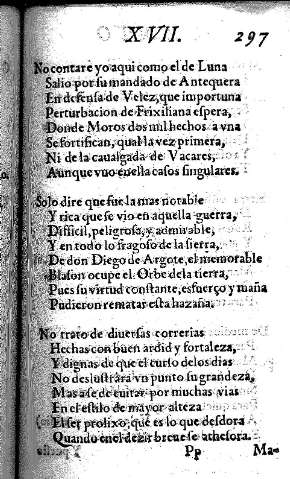 XVII. 297
No contare yo aqui como el de Luna
Salio por su mandado de Antequera
En defensa de Velez, que importuna
Perturbacion de Frixiliana espera,
Donde Moros dos mil hechos a vna
Se fortifican, qual la vez primera,
Ni de la caualgada de Vacares,
Aunque vuo en ella casos singulares.
Solo dire que fue la mas notable
Y rica que se vio en aquella guerra,
Difficil, peligrosa, y admirable,
Y en todo lo fragoso de la sierra,
De don Diego de Argote, el memorable
Blason ocupe el Orbe dela tierra,
Pues su virtud constante, esfuerço y maña
Pudieron rematar esta hazaña.
No trato de diuersas correrias
Hechas con buen ardid y fortaleza,
Y dignas de que el curso delos dias
No deslustrara vn punto su grandeza,
Mas ase de euitar por muchas vias
En el estilo de mayor alteza
El ser prolixo, que es lo que desdora
Quando enel dezir breue se athesora.
Pp Ma-